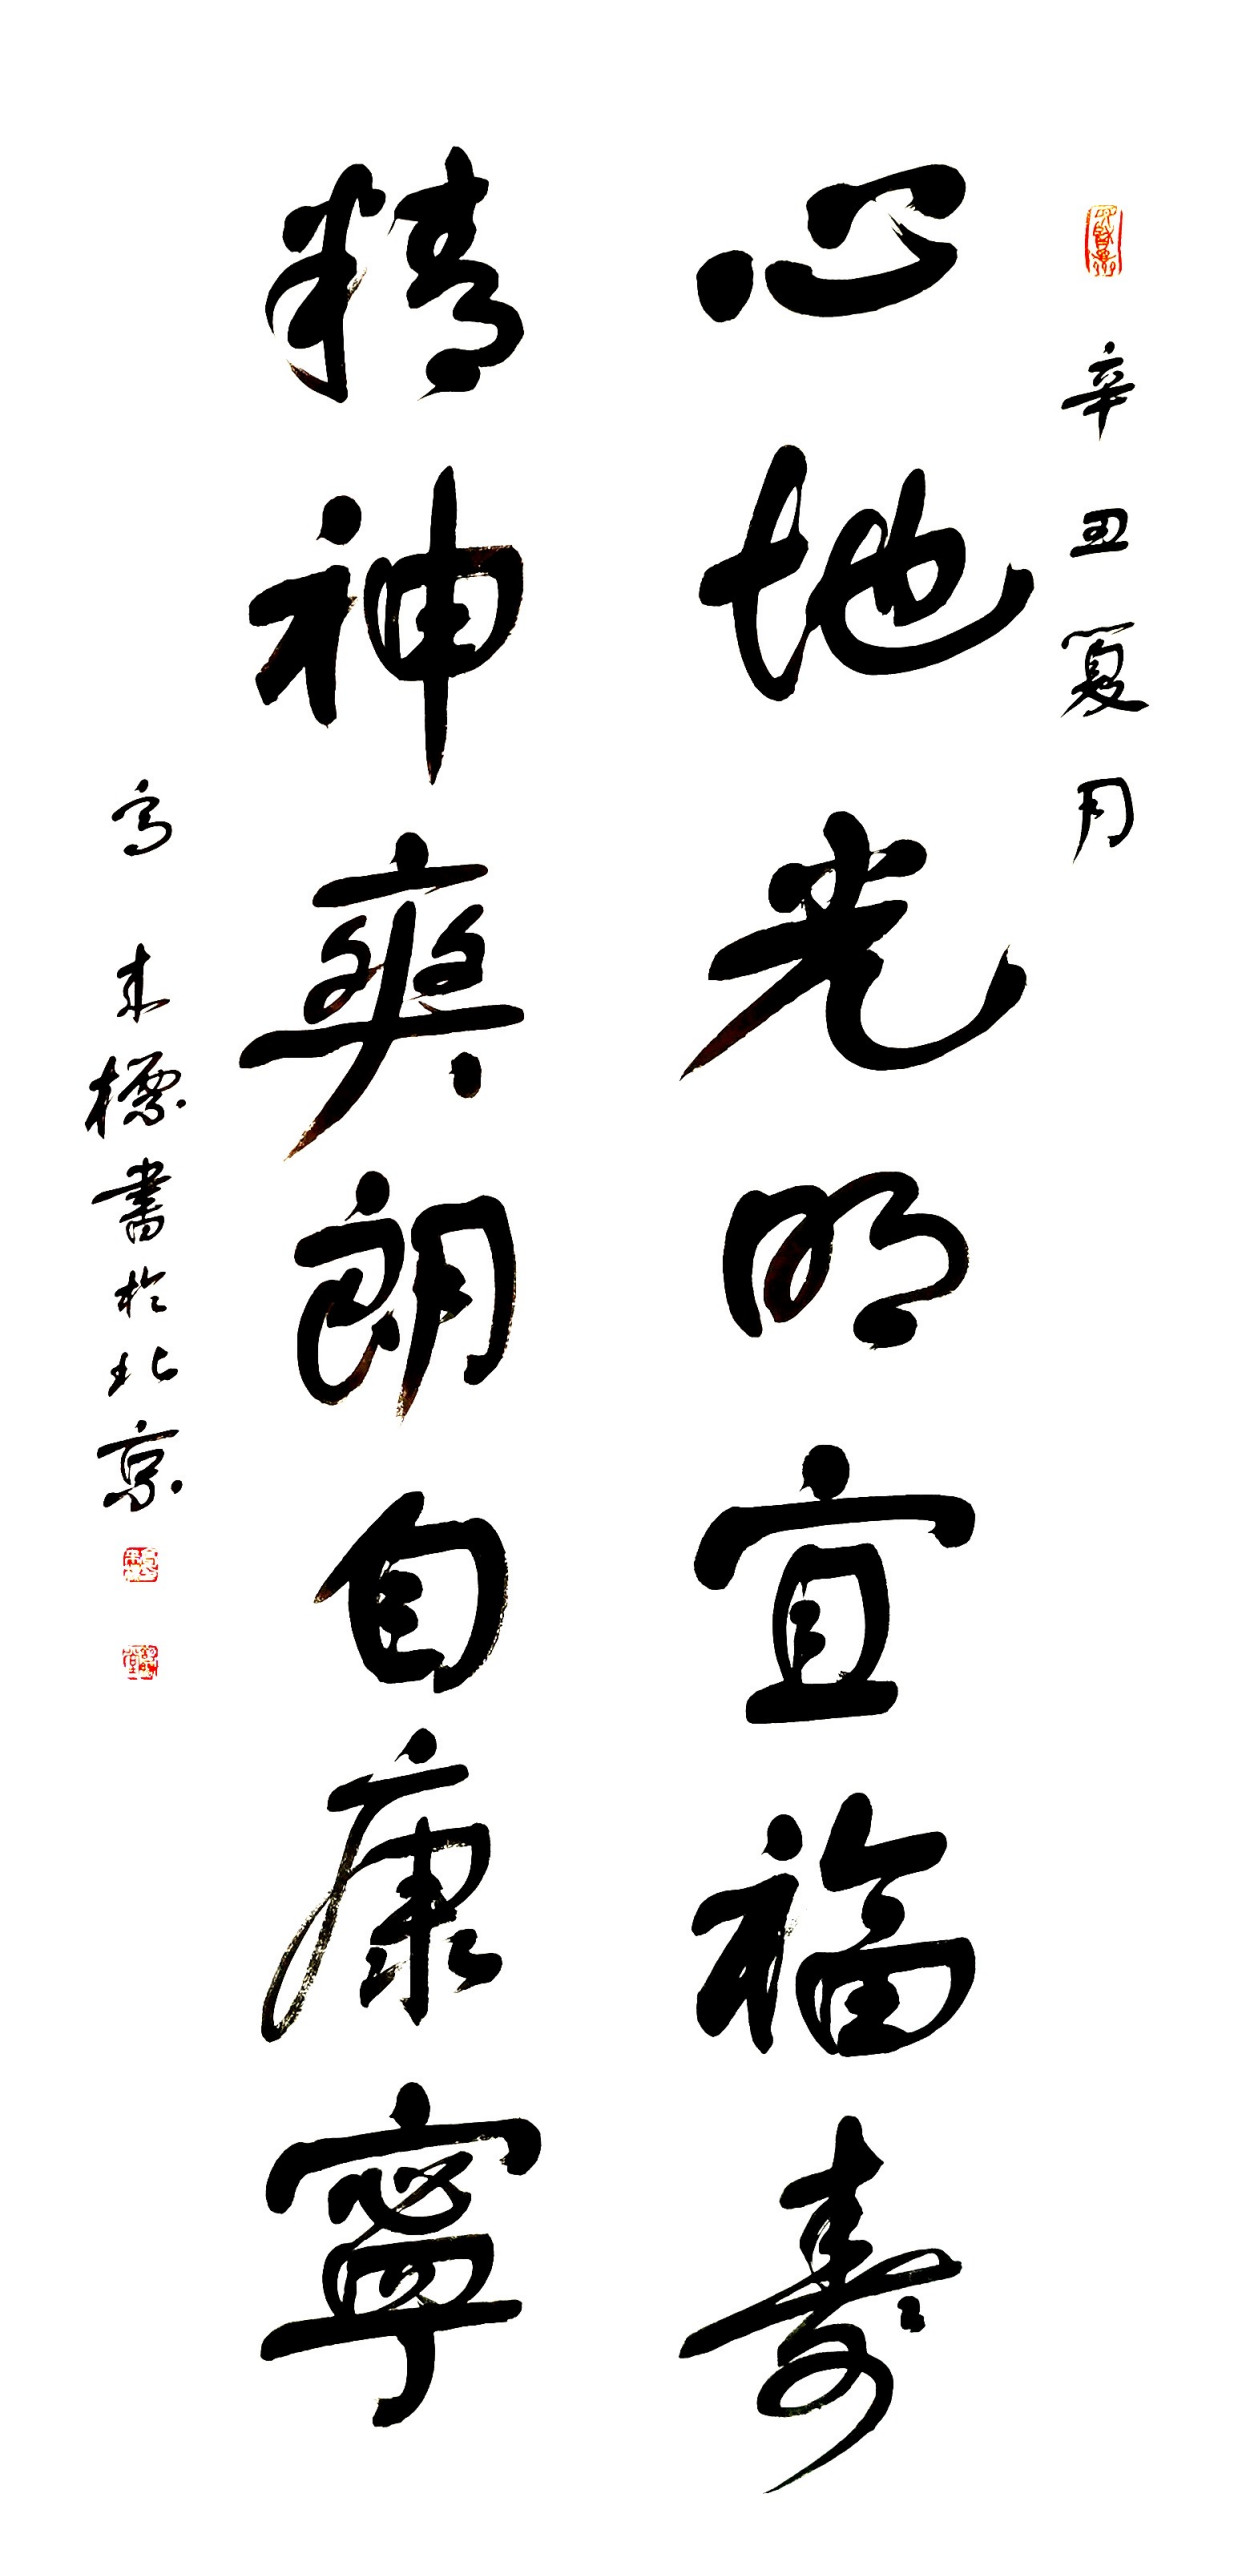 辛丑夏月
心地光明宜福寿
精神爽朗自康寧
高未標書於北京